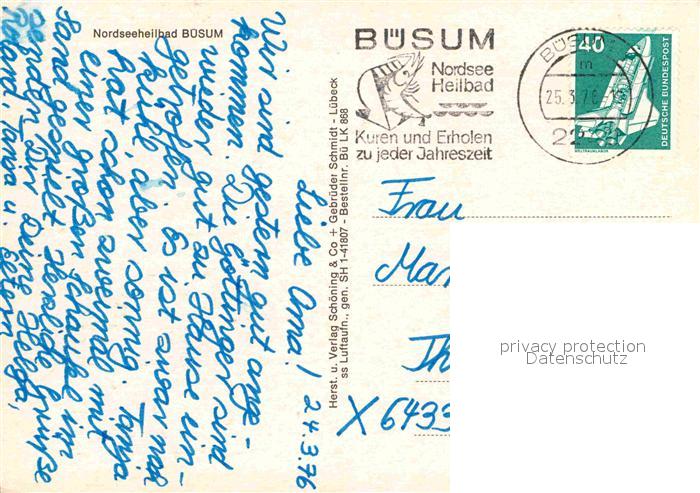 Nordseeheilbad BÜSUM
Liebe Oma! 24.3.76
Wir sind gestern gut ange-
kommen. Die Göttinger sind
wieder gut zu Hause ein-
getroffen. Es ist zwar noch
kalt aber sonnig. Tanja
hat schon zweimal mit
einer großen Schaufel im
Sand gespielt. Herzliche Grüße
senden Dir Deine Helga,
Tanja u. Eltern
Herst. u. Verlag Schöning & Co + Gebrüder Schmidt - Lübeck
ss Luftaufn., gen. SH 1-41807 - Bestellnr. Bü LK 868
BÜSUM
Nordsee
Heilbad
Kuren und Erholen
zu jeder Jahreszeit
BÜS
m
25.3.76
22
40
DEUTSCHE BUNDESPOST
WELTRAUMLABOR
Frau
Mar
Th
X 6433
privacy protection
Datenschutz